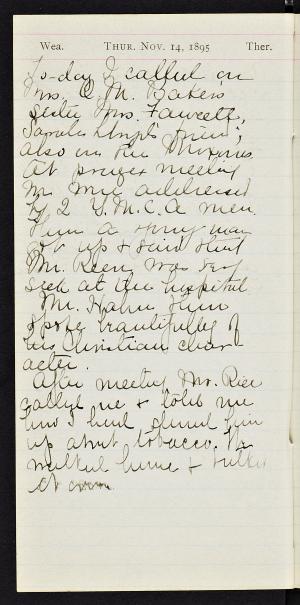 Wea. THUR. NOV. 14, 1895 Ther.
To-day I called on
Mrs. C. M. Bakers
sister Mrs. Fawcett,
friend;
also on the
At prayer meeting
we were addressed
by 2 Y.M.C.A men.
Then a young man
got up & said that
Mr. was very
sick at the hospital
Mr. Hahn then
spoke beautifully of
his Christian char-
acter.
After meeting Mr. Rice
called me & told me
how I had him
up about tobacco. We
walked home & talked